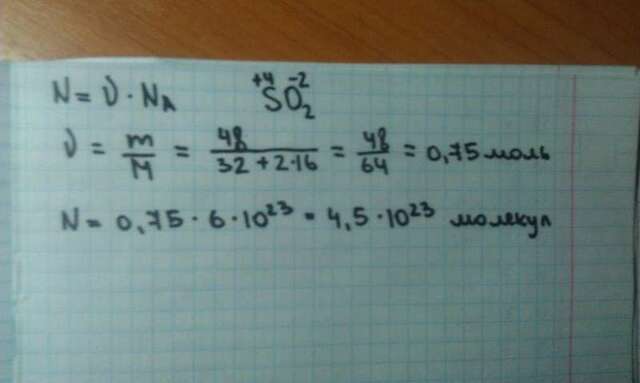 N = ν · Nₐ    S⁺⁴O₂⁻²
ν = m/M = 48/(32 + 2·16) = 48/64 = 0,75 моль
N = 0,75 · 6 · 10²³ = 4,5 · 10²³ молекул